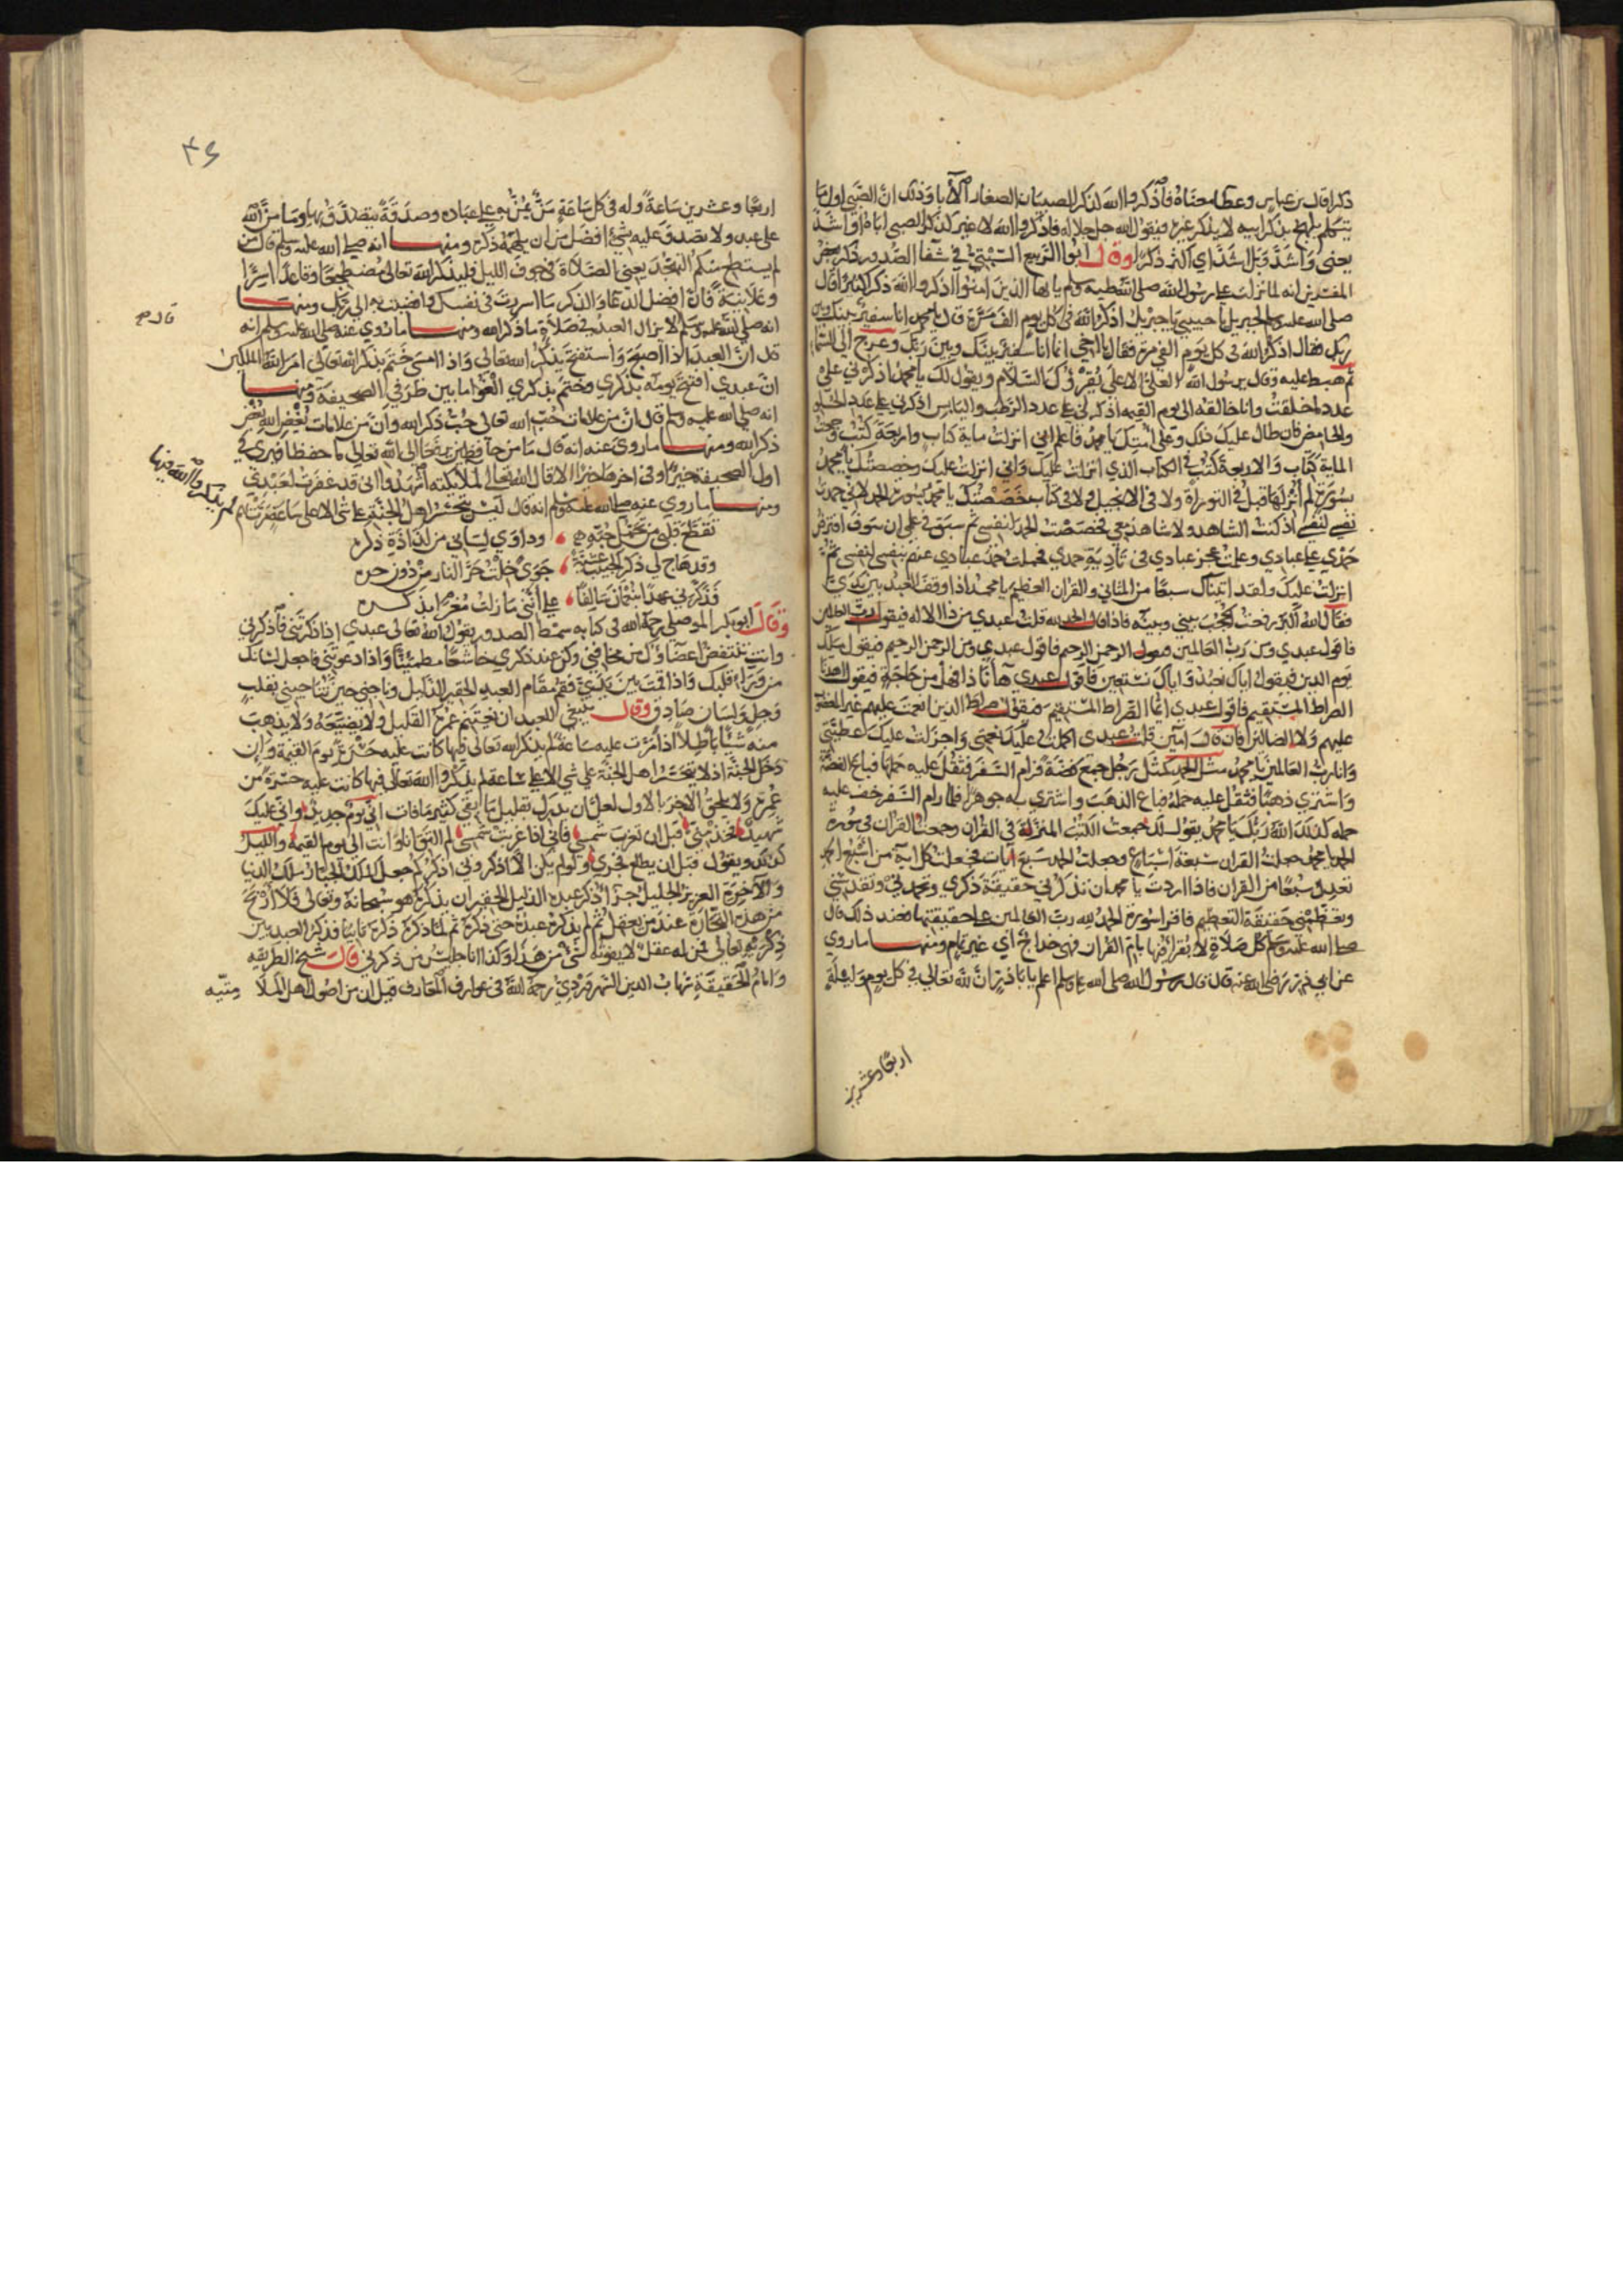 ذكرا قال بن عباس وعطا معناه فاذكروا الله كذكر الصبيان الصغار الآبا وذلك ان الصبي اول ما
يتكلم يلهج بذكر ابيه لا يذكر غيره فيقول الله جل جلاله فاذكروا الله لا غير كذكر الصبي اباه او اشد
يعني واشد قيل اشد اي اكثر ذكرا وقال ابوا الربيع السبتي في شفا الصدور ذكر بعض
المفسرين انه لما نزلت على رسول الله صلى الله عليه وسلم يا ايها الذين امنوا اذكروا الله ذكرا كثيرا قال
صلى الله عليه وسلم لجبريل يا حبيبي يا جبريل اذكر الله في كل يوم الف مرة قال يا محمد انا سفير بينك وبين
ربك فقال اذكر الله في كل يوم الفي مرة فقال يا اخي انما انا سفير بينك وبين ربك وعرج الى السما
ثم هبط عليه وقال يرسول الله العلي الاعلى يقرؤك السلام ويقول لك يا محمد اذكرني على
عدد ما خلقت وانا خالقه الى يوم القيمه اذكرني على عدد الرطب واليابس اذكرني على عدد الحلو
والحامض فان طال عليك ذلك وعلى امتك يا محمد فاعلم اني انزلت ماية كتاب واربعة كتب وجمعت
الماية كتاب والاربعة كتب في الكتاب الذي انزلت عليك واني انزلت عليك وخصصتك يا محمد
بسورة لم انزلها قبل في التوراة ولا في الانجيل ولا في كتاب خصصتك يا محمد بسورة الحمد لاني حمدت
نفسي لنفسي اذ كنت الشاهد ولا شاهد معي فخصصت الحمد لنفسي ثم سبق في علمي ان سوف افترض
حمدي على عبادي وعلمت عجز عبادي في تادية حمدي فحملت حمد عبادي عنهم بنفسي لنفسي ثم
انزلت عليك ولقد اتيناك سبعا من المثاني والقران العظيم يا محمد اذا وقف العبد بين يدي
فقال الله اكبر رفعت الحجب بيني وبينه فاذا قال الحمد لله قلت عبدي من ذا الاله فيقول رب العالمين
فاقول عبدي ومن رب العالمين فيقول الرحمن الرحيم فاقول عبدي ومن الرحمن الرحيم فيقول ملك
يوم الدين فيقول اياك نعبد واياك نستعين فاقول عبدي ها انا ذا فهل من حاجة فيقول اهدنا
الصراط المستقيم فاقول عبدي انما الصراط المستقيم فيقول صراط الذين انعمت عليهم غير المغضوب
عليهم ولا الضالين فان قال امين قلت عبدي اكملت عليك نعمتي واجزلت عليك عطيتي
وانا رب العالمين يا محمد مثل الحمد كمثل رجل جمع فضة فرام السفر فثقل عليه حملها فباع الفضة
واشترى ذهبا فثقل عليه حمله فباع الذهب واشترى به جوهرا فلما رام السفر خف عليه
حمله كذلك الله ربك يا محمد يقول لك جمعت الكتب المنزلة في القران وجمعت القران في سورة
الحمد يا محمد جعلت القران سبعة اسباع وجعلت الحمد سبع ايات فجعلت كل اية من اسبع الحمد
تعدل سبعا من القران فاذا اردت يا محمد ان تذكرني حقيقة ذكري وتحمدني وتقدسني
وتعظمني حقيقة التعظيم فاقرا سورة الحمد لله رب العالمين على حقيقتها فعند ذلك قال
صلى الله عليه وسلم كل صلاة لا يقرا فيها بام القران فهي خداج اي غير تمام ومنها ما روي
عن ابي ذر رضي الله عنه قال قال رسول الله صلى الله عليه وسلم اعلم يا با ذر ان لله تعالى في كل يوم وليلة
اربعا وعشرين
٤٥
اربعا وعشرين ساعة وله في كل ساعة من يمن به على عباده وصدقة يتصدق بها وما من الله
على عبد ولا تصدق عليه بشئ افضل من ان يلهمه ذكره ومنها انه صلى الله عليه وسلم قال من
لم يستطع منكم التهجد يعني الصلاة في جوف الليل فليذكر الله تعالى مضطجعا وقاعدا سرا
وعلانية فان افضل الدعا والذكر ما اسررت في نفسك وافضيت به الى ربك ومنها
قال م
انه صلى الله عليه وسلم لا يزال العبد في صلاة ما ذكر الله ومنها ما روي عنه صلى الله عليه وسلم انه
قال ان العبد اذا اصبح واستفتح بذكر الله تعالى واذا امسى ختم بذكر الله تعالى امر الله الملكين
ان عبدي افتتح يومه بذكري وختم بذكري الغوا ما بين طرفي الصحيفة ومنها
انه صلى الله عليه وسلم قال ان من علامات حب الله تعالى حب ذكر الله وان من علامات بغض الله بغض
ذكر الله ومنها ما روي عنه انه قال ما من حافظين يرفعا الى الله تعالى ما حفظا فيرى في
اول الصحيفة خيرا وفي اخرها خيرا الا قال الله تعالى لملايكته اشهدوا اني قد غفرت لعبدي
ومنها ما روي عنه صلى الله عليه وسلم انه قال ليس يتحسر اهل الجنة على شي الا على ساعة مرت بهم
لم يذكروا الله فيها
تقطع قلبي من تحمل حبه ، وداوي لساني من لذاذة ذكره
وقد هاج لي ذكر الحبيب ، جوى خلت حر النار من دون حره
فذكرني عهدا بنعمان سالفا ، على انني ما زلت مغرا بذكره
وقال ابو بكر الموصلي رحمه الله في كتابه سمط الصدور يقول الله تعالى عبدي اذا ذكرتني فاذكرني
وانت تنتفض اعضاؤك من مخافتي وكن عند ذكري خاشعا مطمئنا واذا دعوتني فاجعل لسانك
من ورا قلبك واذا قمت بين يدي فقم مقام العبد الحقير الذليل وناجني حين تناجيني بقلب
وجل ولسان صادق وقال شيخي للعبد ان يغتنم عمره القليل ولا يضيعه ولا يذهب
منه شيئا باطلا اذا مرت عليه ساعة لم يذكر الله تعالى فيها كانت عليه حسرة يوم القيمة وان
دخل الجنة اذ لا يتحسر اهل الجنة على شي الا على ساعة لم يذكروا الله تعالى فيها كانت عليه حسرة من
عمره ولا يلحق الاخر بالاول لعل ان يدرك بقليل ما بقي كثير ما فات اني يوم جديد واني عليك
شهيد فخذ مني قبل ان تغرب شمسي فاني اذا غربت شمسي لم التق انا وانت الى يوم القيمة والليل
كذلك ويقول قبل ان يطلع فجري ولو لم يكن الا اذكروني اذكركم جعل الملك الجبار ملك الدنيا
والآخرة العزيز الجليل جزا ذكر عبده الذليل الحقير ان يذكره هو سبحانه وتعالى فلا اربح
من هذه التجارة عند من يعقل ثم لم يذكره عبده حتى ذكره ثم لما ذكره ذكره ثانيا فذكر العبد بين
ذكريه تعالى فمن له عقل لا يفوته شئ من هذا وكذا انا جليس من ذكرني قال شيخ الطريقه
وامام الحقيقة شهاب الدين السهروردي رحمه الله في عوارف المعارف قيل ان من اصول اهل الملا